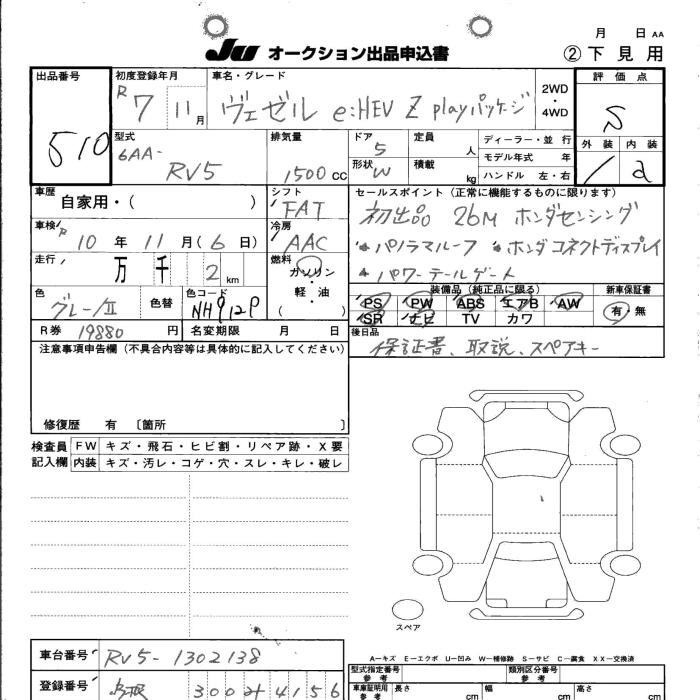 月 日 AA
JU オークション出品申込書 ②下見用
出品番号 初度登録年月 車名・グレード 評価点
510 R7 11月 ヴェゼル e:HEV Z playパッケージ 2WD・4WD S
型式 排気量 ドア 定員 ディーラー・並行 外装 内装
6AA-RV5 1500cc 5 人 モデル年式 年 1 a
形状 W 積載 kg ハンドル 左・右
車歴 シフト セールスポイント(正常に機能するものに限ります)
自家用・( ) FAT 初出品 26M ホンダセンシング
車検 R10年11月(6日) 冷房 AAC パノラマルーフ ホンダコネクトディスプレイ
走行 万 千 2km 燃料 ガソリン・軽油 ( ) パワーテールゲート
色 グレーII 色替 色コード NH912P
装備品(純正品に限る) 新車保証書
PS PW ABS エアB AW 有・無
SR ナビ TV カワ
R券 19880円 名変期限 月 日 後日品
保証書、取説、スペアキー
注意事項申告欄(不具合内容等は具体的に記入してください)
修復歴 有 〔箇所 〕
検査員 FW キズ・飛石・ヒビ割・リペア跡・X要
記入欄 内装 キズ・汚レ・コゲ・穴・スレ・キレ・破レ
スペア
A…キズ E…エクボ U…凹み W…補修跡 S…サビ C…腐食 XX…交換済
車台番号 RV5-1302138 型式指定番号 参考 類別区分番号 参考
登録番号 島根 300 4156 車庫証明用 参考 長さ cm 幅 cm 高さ cm